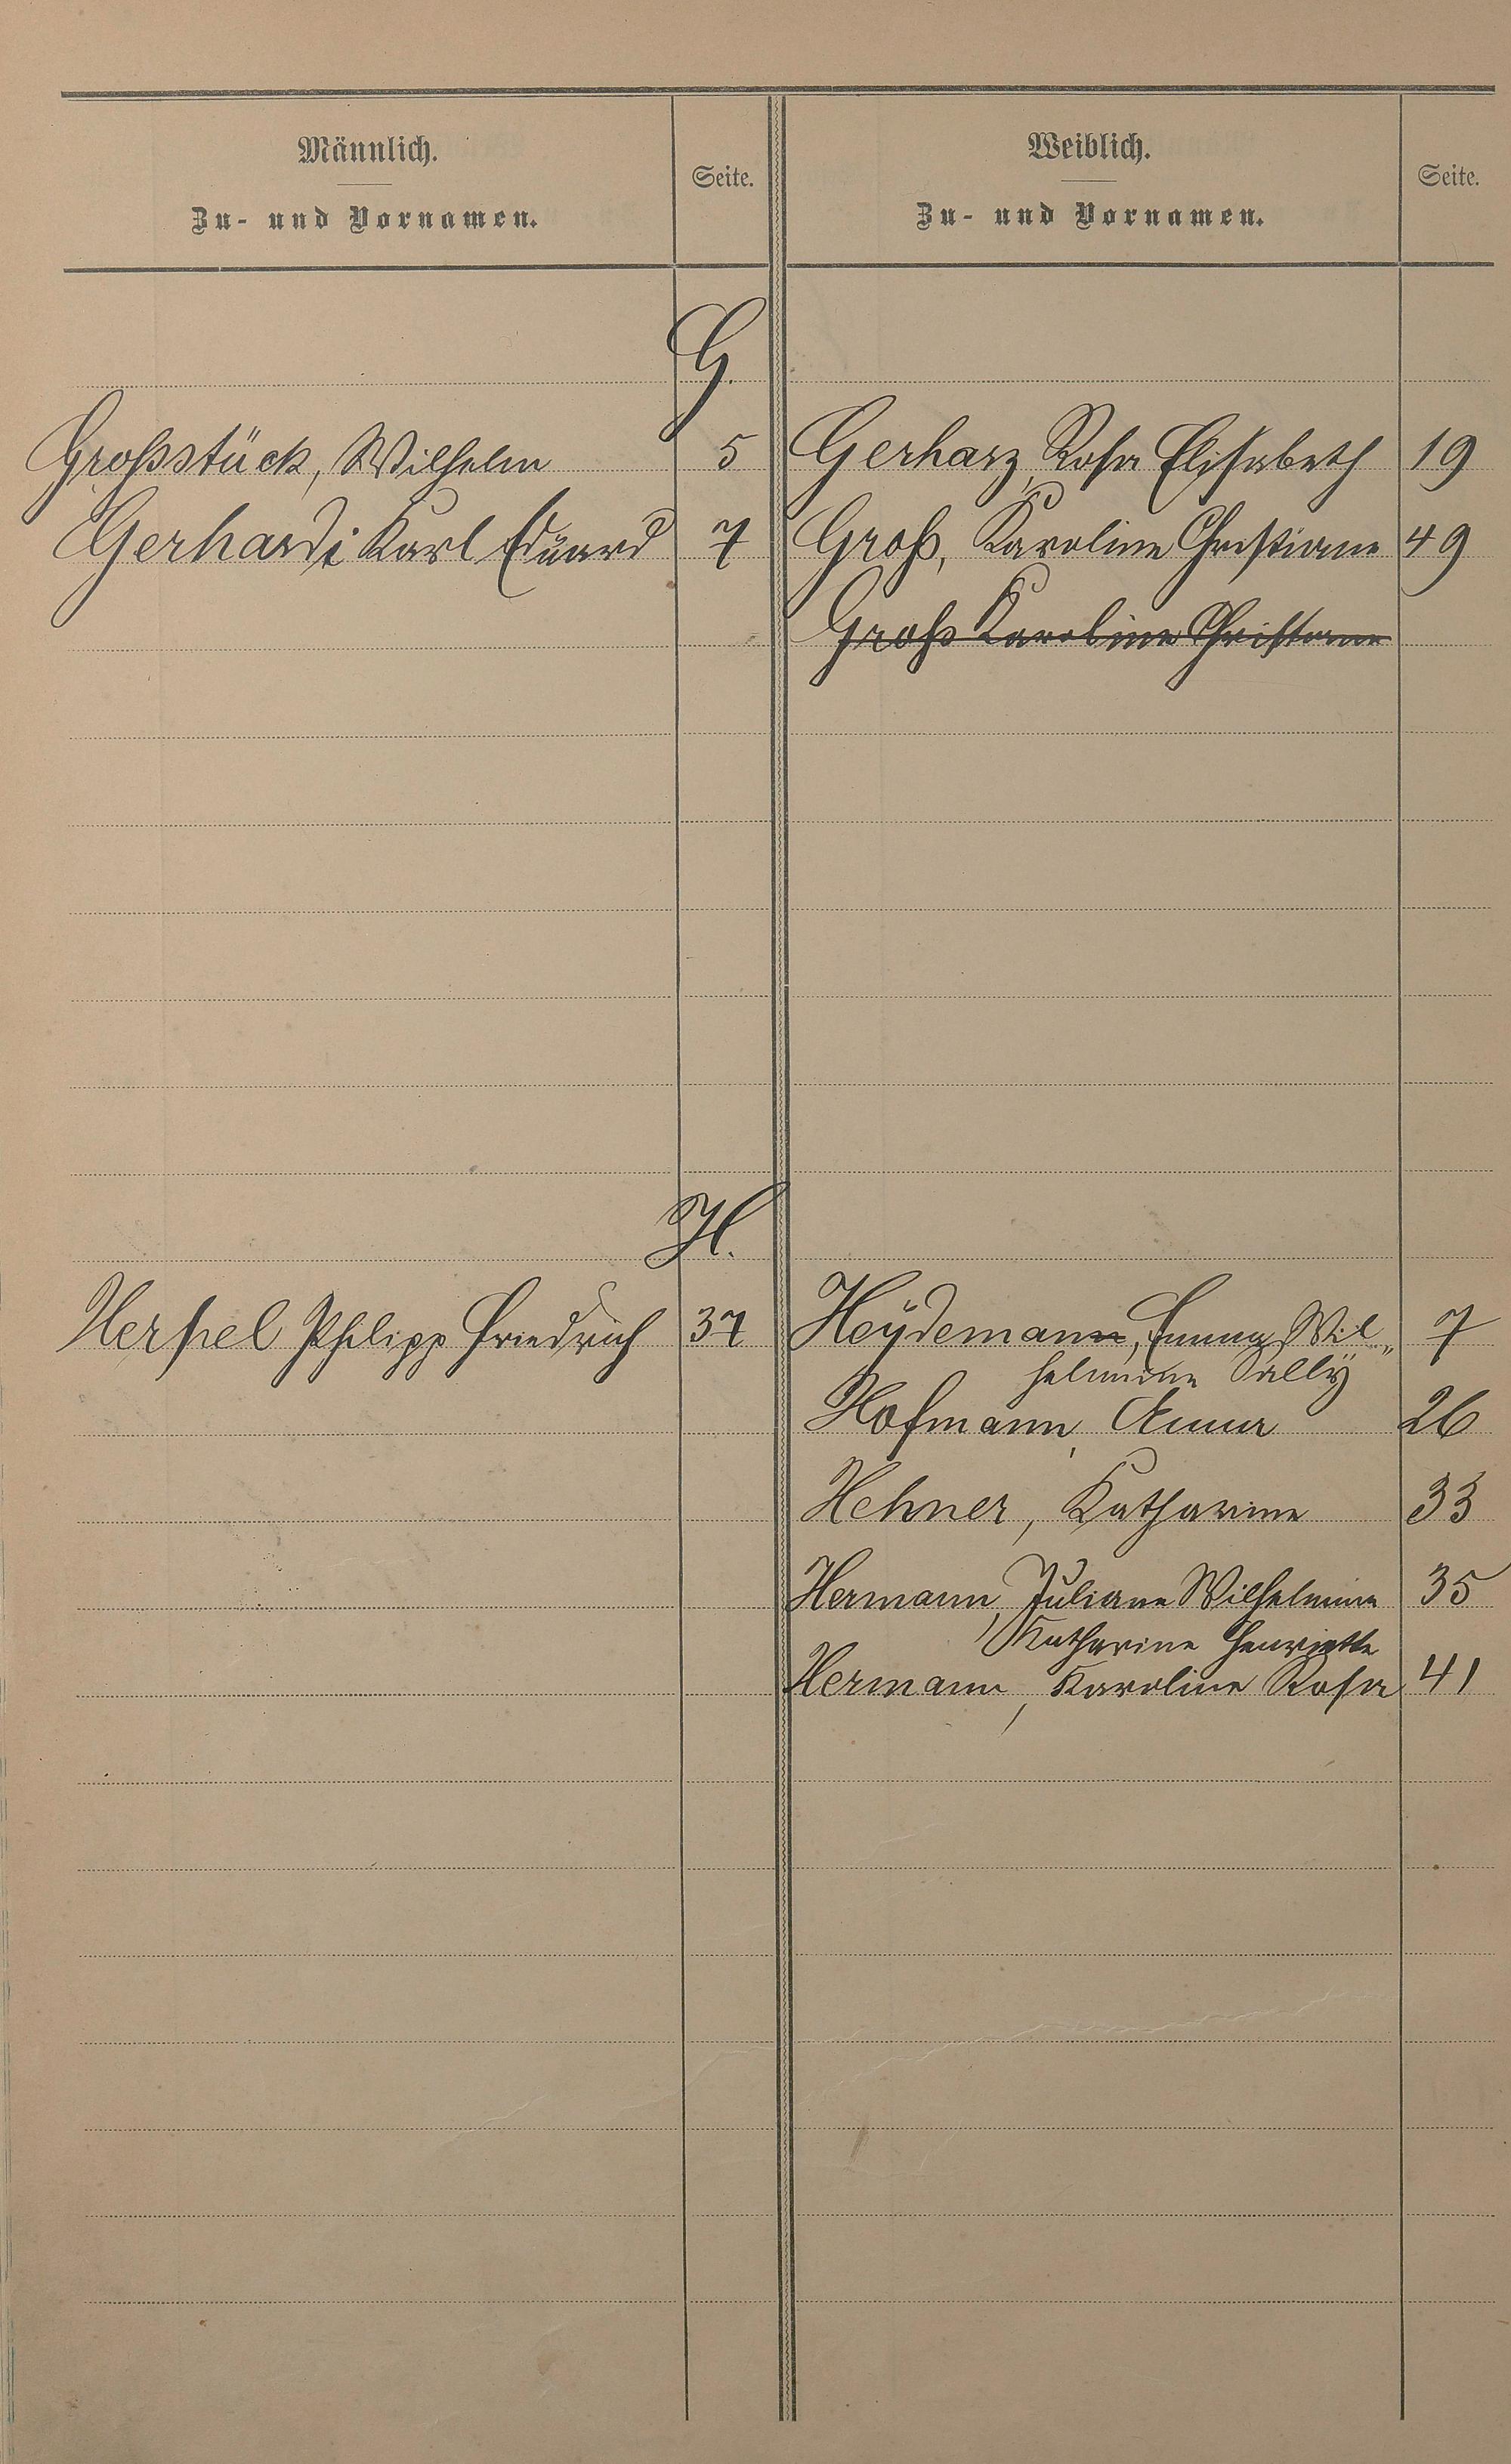 Männlich.
Zu- und Vornamen.
Seite.
Weiblich.
Zu- und Vornamen.
Seite.
G.
Großstück, Wilhelm 5
Gerhardi Karl Eduard 7
Gerharz, Rosa Elisabeth 19
Groß, Karoline Christiane 49
Groß Karoline Christiane
H.
Herpel Philipp Friedrich 37
Heÿdemann, Emma Wil„ 7
helmine Sallÿ
Hofmann, Anna 26
Hehner, Katharine 33
Hermann, Juliane Wilhelmine 35
Katharine Henriette
Hermann, Karoline Rosa 41